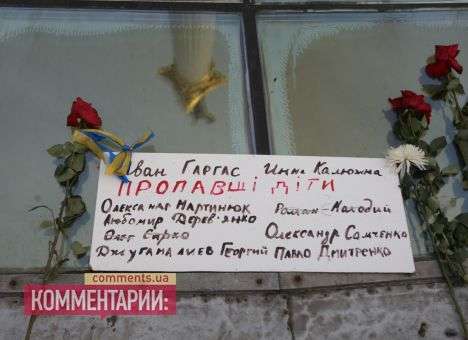 Іван Гаргас Инна Калюжна
ПРОПАВШІ ДІТИ
Олександр Мартинюк Роман Находий
Любомир Дерев'янко
Олег Сирко Олександр Самченко
Джугамалиев Георгий Павло Дмитренко
comments.ua
КОММЕНТАРИИ: